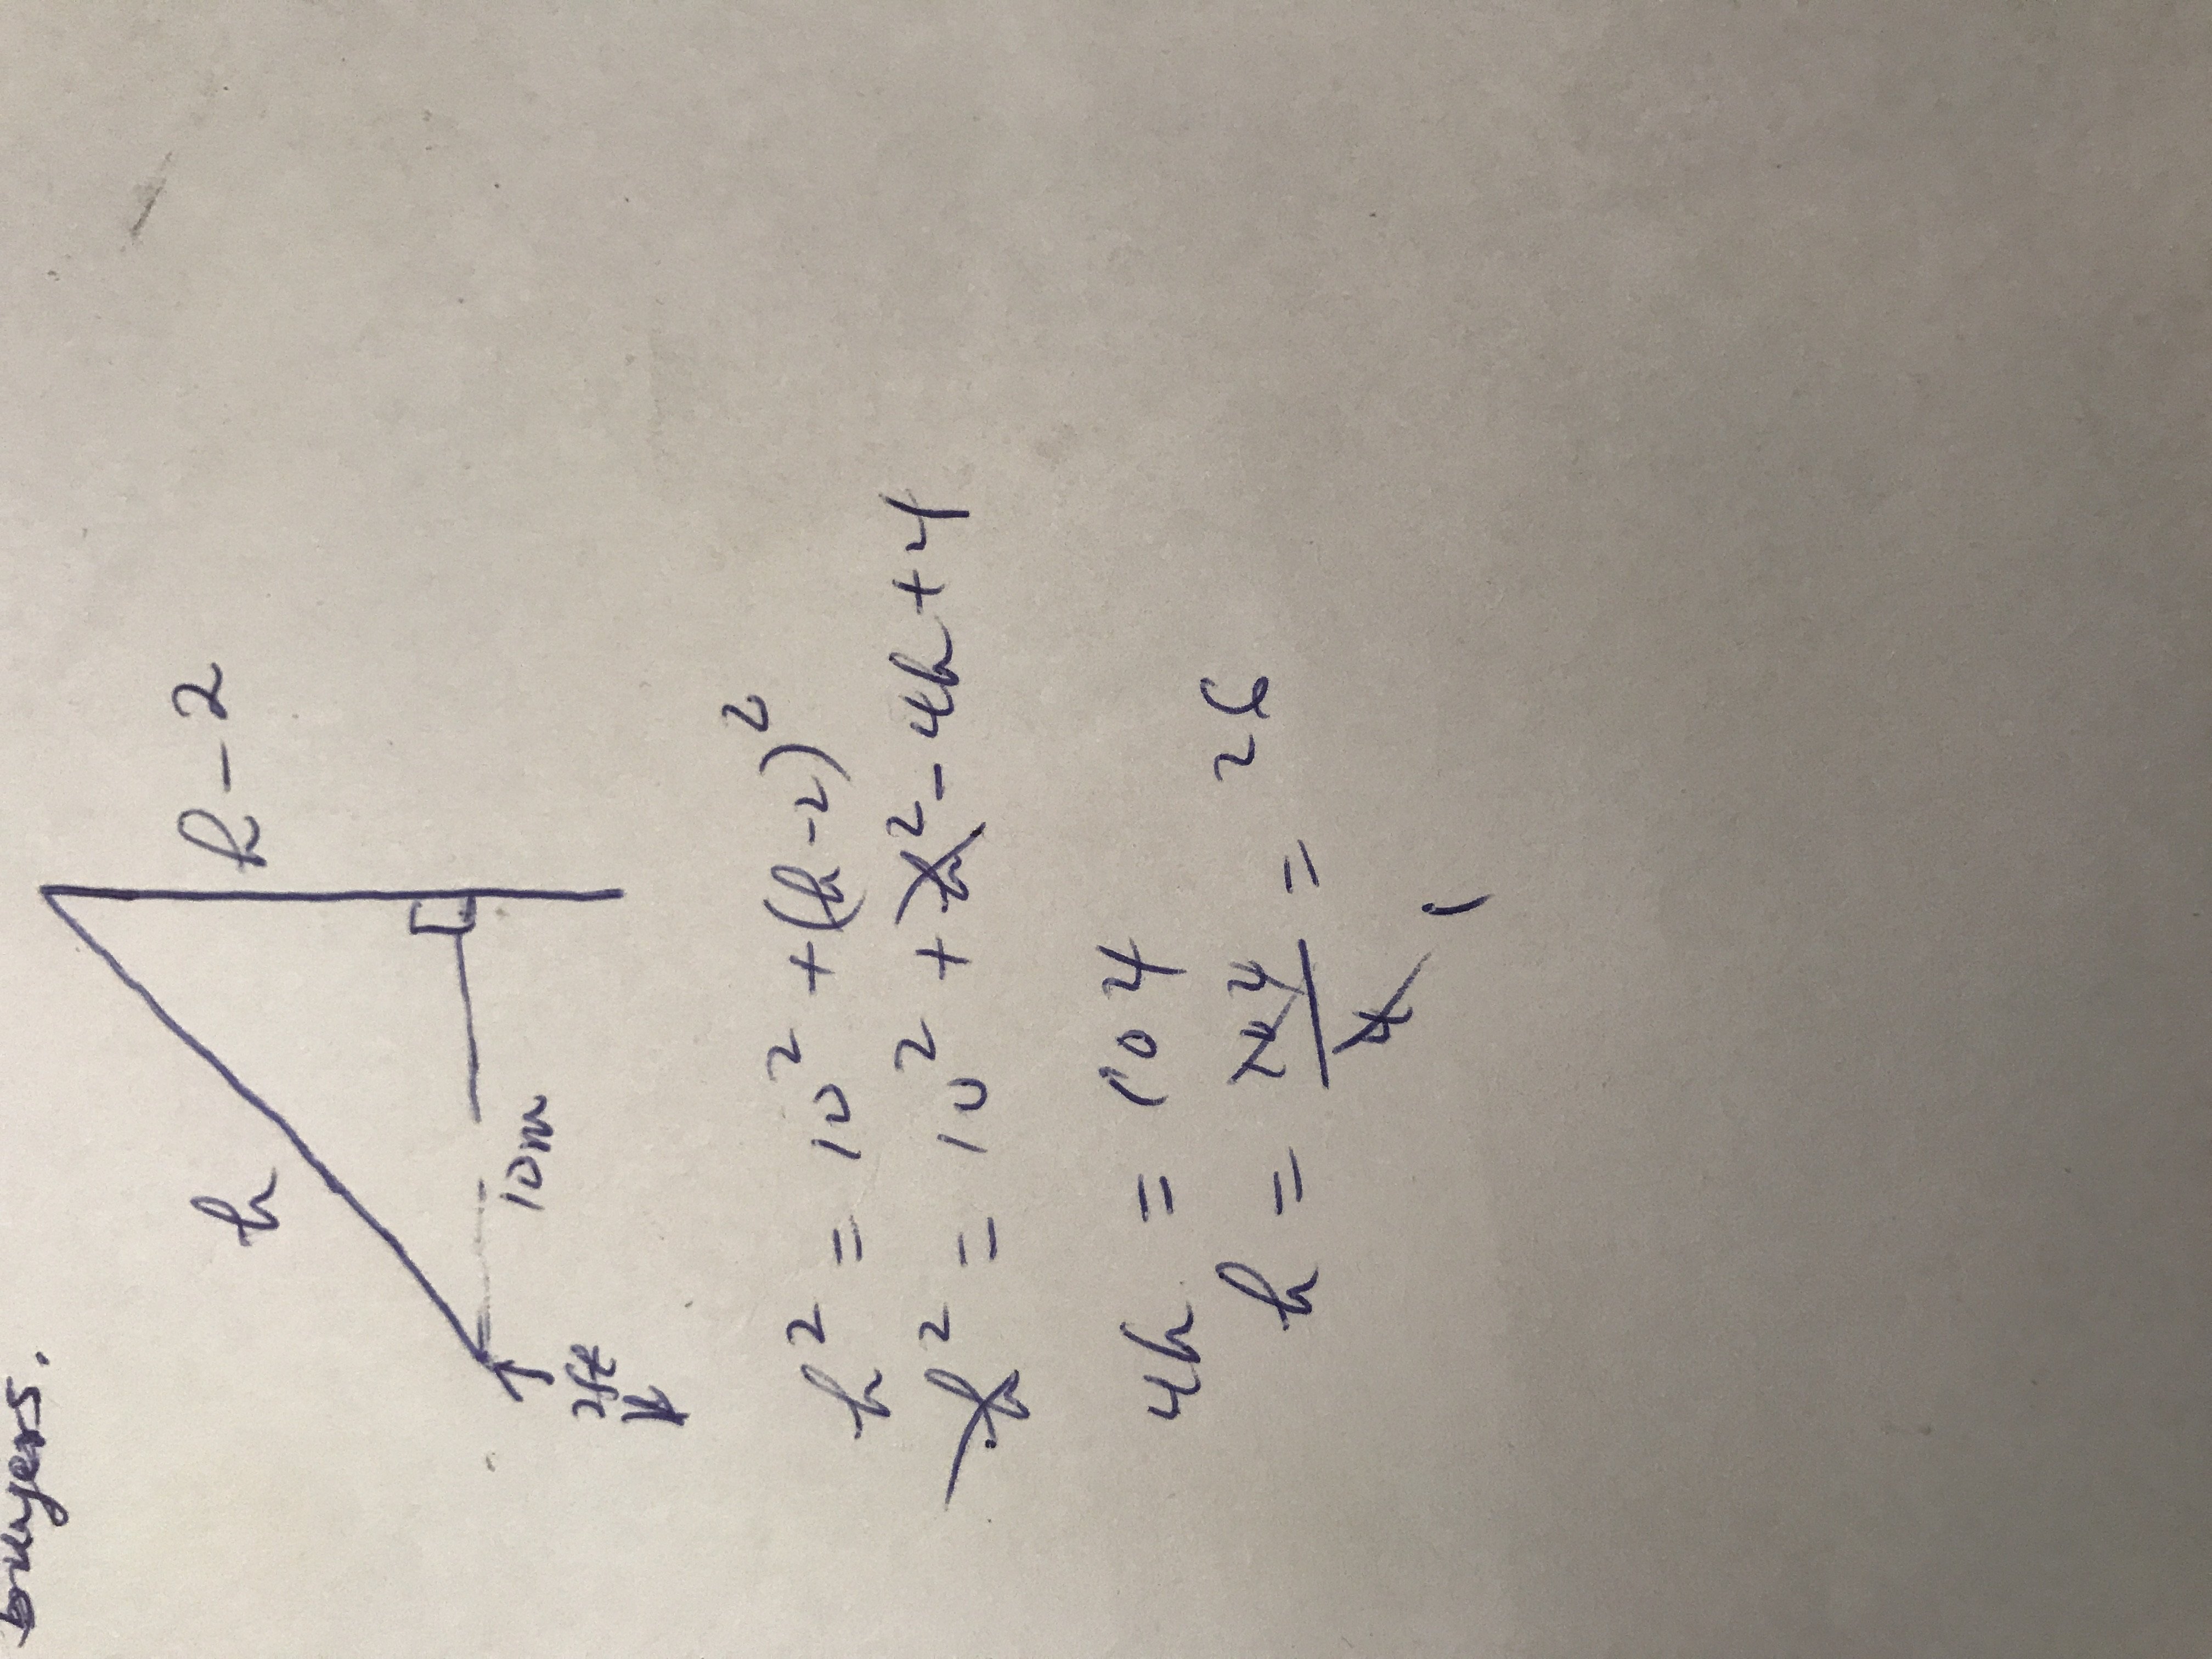 buyers.
h
h-2
10m
2ft
h² = 10² + (h-2)²
h² = 10² + h² - 4h + 4
4h = 104
h = 104/4 = 26
1